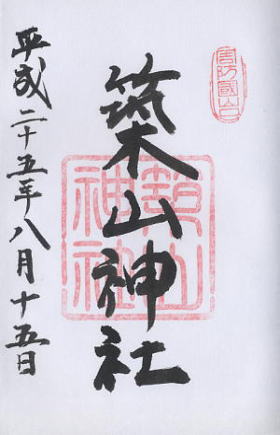 周防國山口
築山神社
築山神社
平成二十五年八月十五日